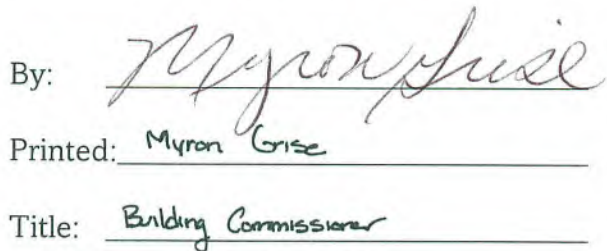 By: Myron Grise
Printed: Myron Grise
Title: Building Commissioner